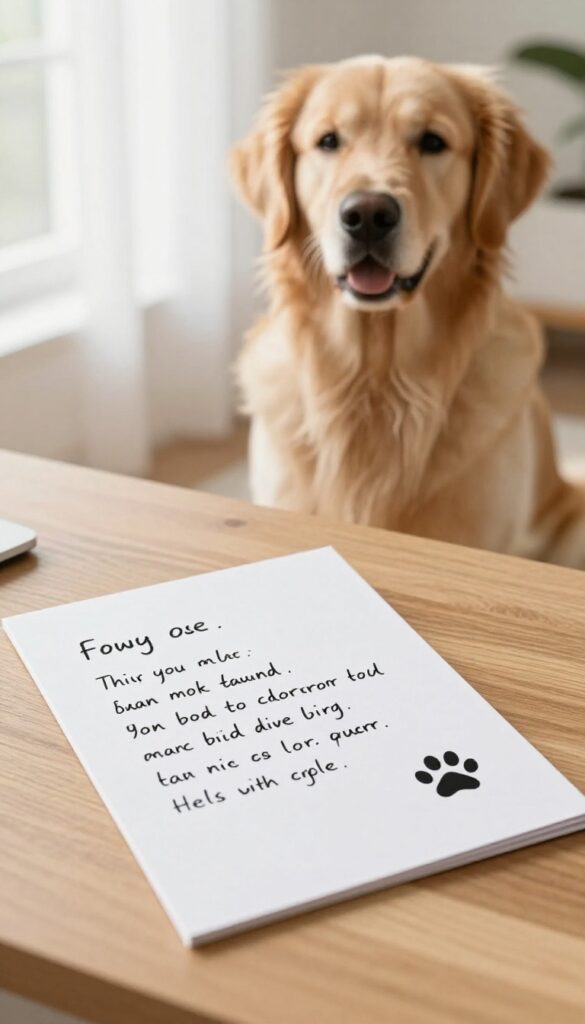 Fowy ose.
Thir you mhc:
buan mok taund.
yon bod to cdorsror tod
marc biid dive birg.
tan nic cs lor. puerr.
Hels with crple.